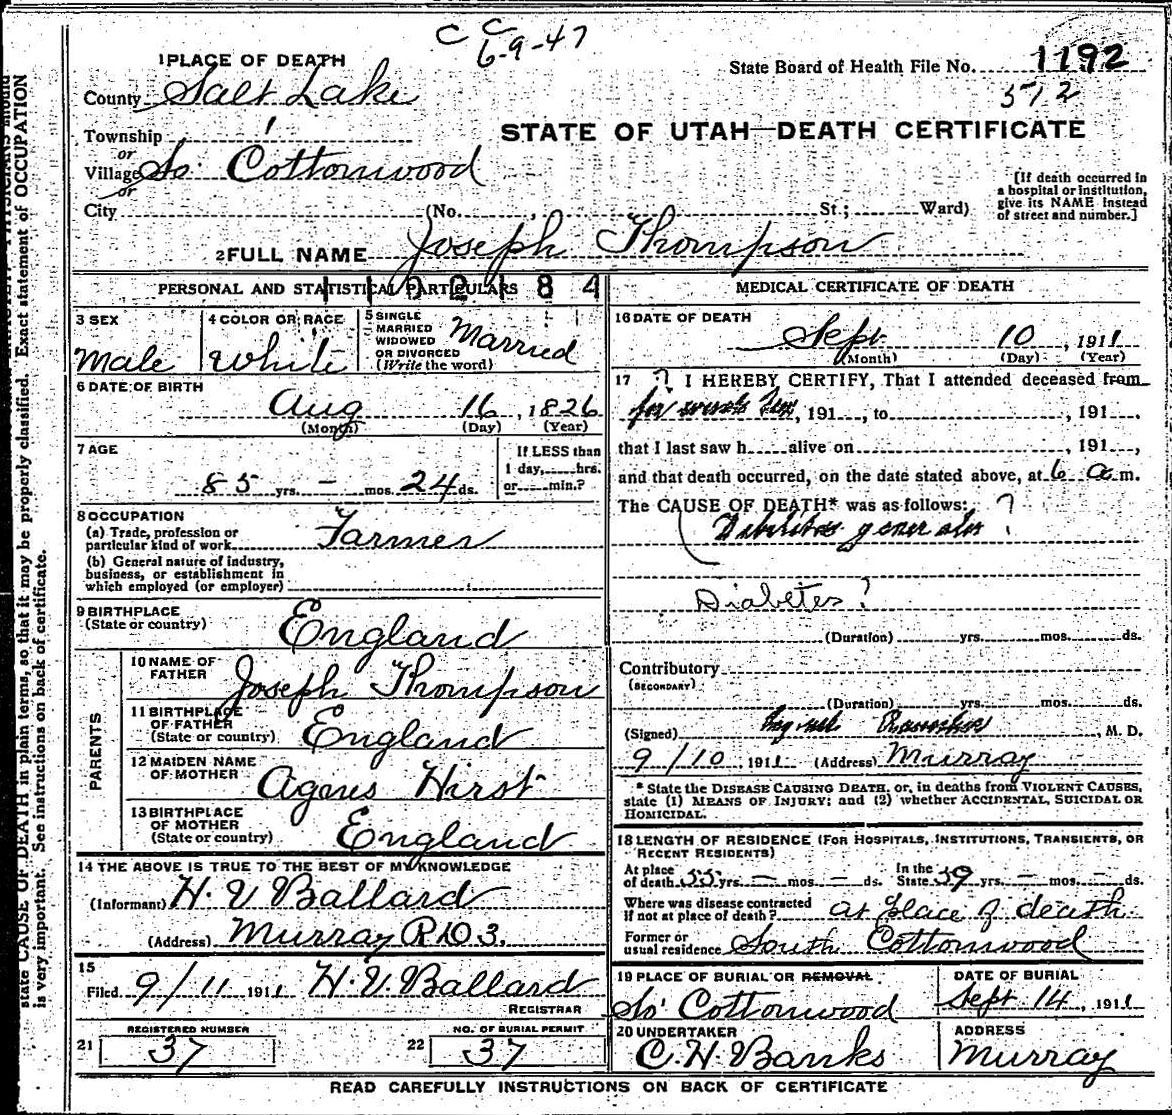 C C
6-9-47
1 PLACE OF DEATH
State Board of Health File No. 1192
572
County Salt Lake
STATE OF UTAH—DEATH CERTIFICATE
Township
or
Village So Cottonwood
or
City (No. , St.; Ward)
[If death occurred in
a hospital or institution,
give its NAME instead
of street and number.]
2 FULL NAME Joseph Thompson
1102184
PERSONAL AND STATISTICAL PARTICULARS
3 SEX
Male
4 COLOR OR RACE
White
5 SINGLE
MARRIED
WIDOWED
OR DIVORCED
(Write the word)
Married
6 DATE OF BIRTH
Aug 16, 1826
(Month) (Day) (Year)
7 AGE
85 yrs. — mos. 24 ds.
If LESS than
1 day, hrs.
or min.?
8 OCCUPATION
(a) Trade, profession or
particular kind of work Farmer
(b) General nature of industry,
business, or establishment in
which employed (or employer)
9 BIRTHPLACE
(State or country) England
PARENTS
10 NAME OF
FATHER Joseph Thompson
11 BIRTHPLACE
OF FATHER
(State or country) England
12 MAIDEN NAME
OF MOTHER Agnes Hirst
13 BIRTHPLACE
OF MOTHER
(State or country) England
14 THE ABOVE IS TRUE TO THE BEST OF MY KNOWLEDGE
(Informant) H. V Ballard
(Address) Murray R D 3.
15
Filed 9/11 1911 H. V. Ballard
REGISTRAR
REGISTERED NUMBER
21 37
NO. OF BURIAL PERMIT
22 37
MEDICAL CERTIFICATE OF DEATH
16 DATE OF DEATH
Sept 10, 1911
(Month) (Day) (Year)
17 ? I HEREBY CERTIFY, That I attended deceased from
for , 191 , to , 191 ,
that I last saw h alive on , 191 ,
and that death occurred, on the date stated above, at 6 a m.
The CAUSE OF DEATH* was as follows: ?
Diabetes?
(Duration) yrs. mos. ds.
Contributory
(SECONDARY)
(Duration) yrs. mos. ds.
(Signed) , M. D.
9/10, 1911 (Address) Murray
* State the DISEASE CAUSING DEATH, or, in deaths from VIOLENT CAUSES,
state (1) MEANS OF INJURY; and (2) whether ACCIDENTAL, SUICIDAL OR
HOMICIDAL.
18 LENGTH OF RESIDENCE (FOR HOSPITALS, INSTITUTIONS, TRANSIENTS, OR
RECENT RESIDENTS)
At place
of death 55 yrs. — mos. — ds.
In the
State 59 yrs. — mos. — ds.
Where was disease contracted
if not at place of death? at place of death
Former or
usual residence South Cottonwood
19 PLACE OF BURIAL OR REMOVAL
So Cottonwood
DATE OF BURIAL
Sept 14, 1911
20 UNDERTAKER
C. H. Banks
ADDRESS
Murray
READ CAREFULLY INSTRUCTIONS ON BACK OF CERTIFICATE
state CAUSE OF DEATH in plain terms, so that it may be properly classified. Exact statement of OCCUPATION
is very important. See instructions on back of certificate.